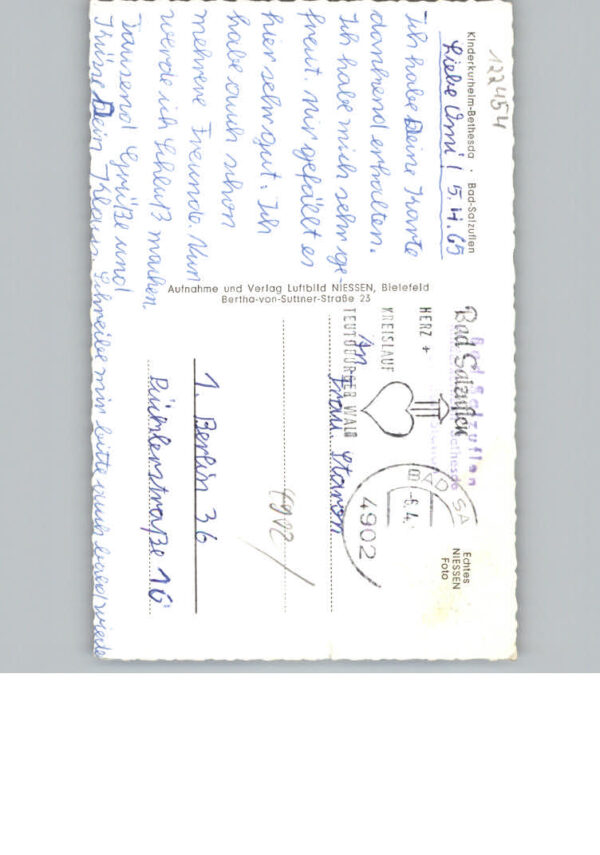 122454
Kinderkurheim-Bethesda · Bad-Salzuflen
Liebe Omi! 5.4.65
Ich habe Deine Karte
dankend erhalten.
Ich habe mich sehr ge-
freut. Mir gefällt es
hier sehr gut. Ich
habe auch schon
mehrere Freunde. Nun
werde ich Schluß machen.
Tausend Grüße und
Küsse Dein Klaus. Schreibe mir bitte auch bald wieder
Aufnahme und Verlag Luftbild NIESSEN, Bielefeld
Bertha-von-Suttner-Straße 23
Bad Salzuflen
Bad Salzuflen
Bethesda
HERZ +
KREISLAUF
TEUTOBURGER WALD
BAD SA
-6.4.
4902
Echtes
NIESSEN
Foto
An
Frau Staron
4902
1. Berlin 36
Pücklerstraße 16